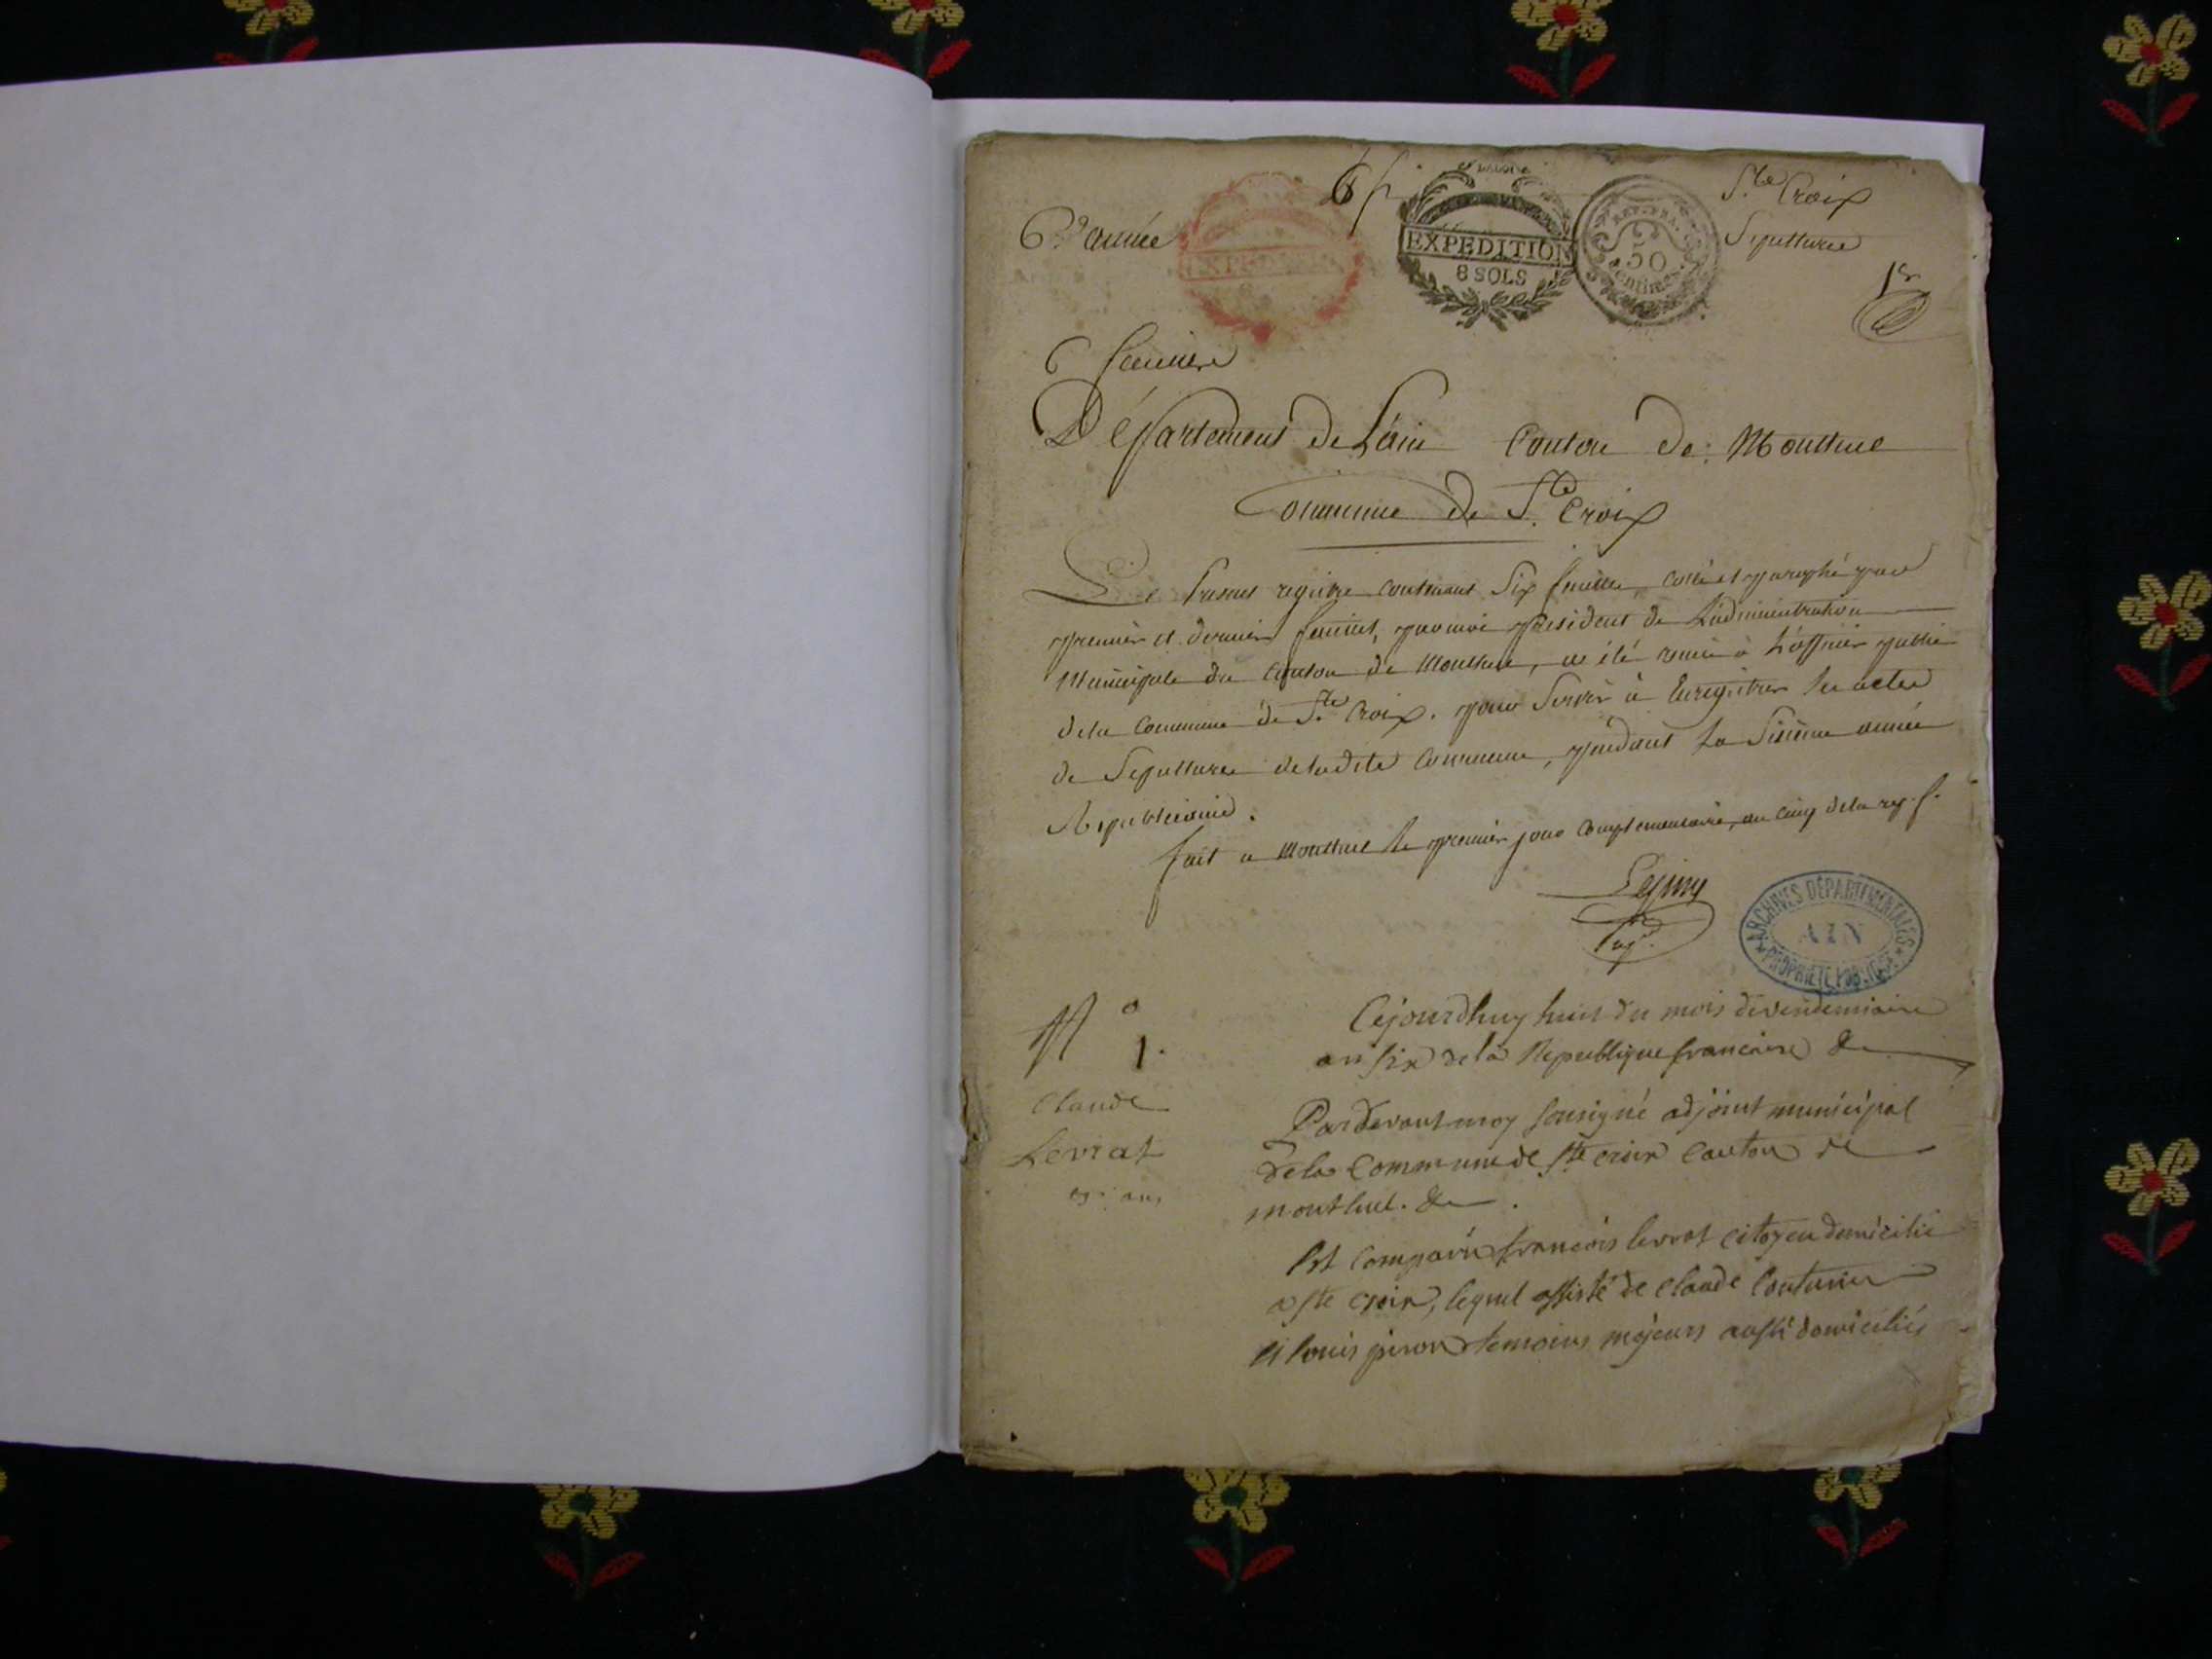 6e année
EXPEDITION
8 SOLS
REP. FRA.
50
centimes
Ste Croix
Sepultures
1er
6 feuilles
Département de L'ain Canton de Montluel
Commune de Ste Croix
Le Present registre contenant Six feuilles, cotté et paraphé par
premier et dernier feuillet, par moi président de L'administration
Municipale du Canton de Montluel, a été remis à L'officier public
de la Commune de Ste Croix. pour Servir à Enregistrer les actes
de Sepultures de ladite Commune, pendant la Sixieme année
Republicaine.
fait a Montluel le premier jour complementaire, an cinq de la rep. f.
ARCHIVES DÉPARTEMENTALES
AIN
PROPRIÉTÉ PUBLIQUE
N° 1.
Claude
Levrat
ans
Cejourdhuy huit du mois de vendemiaire
an six de la Republique francaise &
Pardevant moy sousigné adjoint municipal
de la Commune de Ste croix Canton de
montluel. &
Est Comparu francois levrat citoyen domicilié
a ste croix, lequel assisté de Claude Couturier
et louis piron temoins majeurs aussi domiciliés